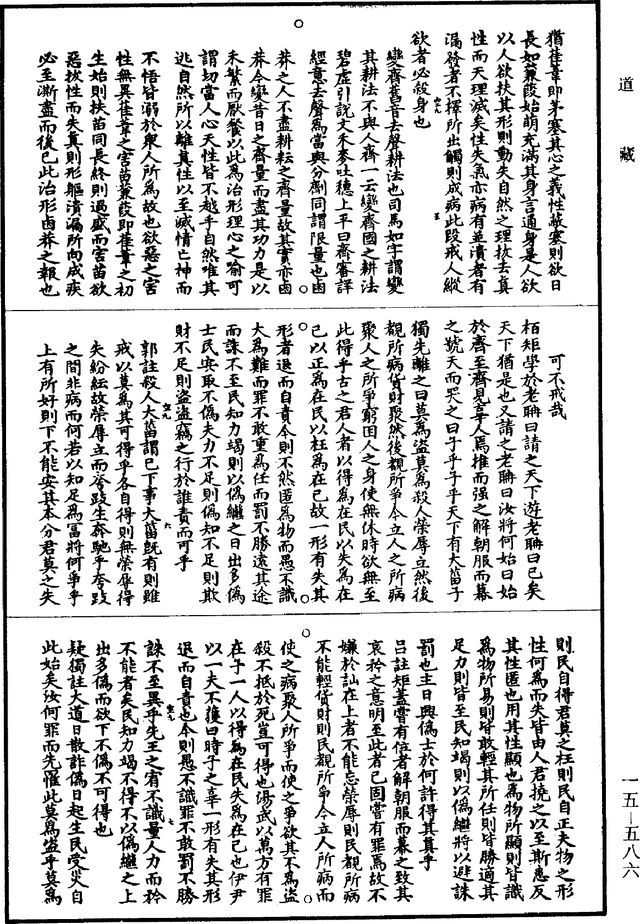 道藏
猶萑葦即茅塞其心之義性蔽塞則欲日
長如蒹葭始萌充滿其身言通身是人欲
以人欲扶其形則動失自然之理拔去真
性而天理滅矣性失氣亦病有並潰者有
漏發者不擇所出觸則成病此段戒人縱
欲者必殺身也
變齊舊音去聲耕法也司馬如字謂變
其耕法不與人齊一云變齊國之耕法
碧虛引說文禾麥吐穗上平曰齊審詳
經意去聲為當與分劑同謂限量也鹵
莽之人不盡耕耘之齊量故其實亦鹵
莽今變昔日之齊量而盡其功力是以
禾繁而厭飱以此為治形理心之喻可
謂切當人心天性皆不越乎自然唯其
逃自然所以離真性以至滅情亡神而
不悟皆溺於眾人所為故也欲惡之害
性無異萑葦之害苗蒹葭即萑葦之初
生始則扶苗同長終則過盛而害苗欲
惡拔性而失真則形軀潰漏所向成疾
必至澌盡而後已此治形鹵莽之報也
可不戒哉
栢矩學於老聃曰請之天下遊老聃曰已矣
天下猶是也又請之老聃曰汝將何始曰始
於齊至齊見辜人焉推而强之解朝服而幕
之號天而哭之曰子乎子乎天下有大菑子
獨先離之曰莫為盜莫為殺人榮辱立然後
覩所病貨財聚然後覩所爭今立人之所病
聚人之所爭窮困人之身使無休時欲無至
此得乎古之君人者以得為在民以失為在
己以正為在民以枉為在己故一形有失其
形者退而自責今則不然匿為物而愚不識
大為難而罪不敢重為任而罰不勝遠其途
而誅不至民知力竭則以偽繼之日出多偽
士民安取不偽夫力不足則偽知不足則欺
財不足則盜盜竊之行於誰責而可乎
郭註殺人大菑謂已下事大菑既有則雖
戒以莫為其可得乎各自得則無榮辱得
失紛紜故榮辱立而夸跂生奔馳乎夸跂
之間非病而何若以知足為富將何爭乎
上有所好則下不能安其本分君莫之失
則民自得君莫之枉則民自正夫物之形
性何為而失皆由人君撓之以至斯患反
其性匿也用其性顯也為物所顯則皆識
為物所易則皆敢輕其所任則皆勝適其
足力則皆至民知竭則以偽繼將以避誅
罰也主日興偽士於何許得其真乎
吕註矩蓋嘗有位者解朝服而幕之致其
哀矜之意明至此者已固嘗有罪焉故不
嫌於訕在上者不能忘榮辱則民覩所病
不能輕貨財則民覩所爭今立人所病而
使之病聚人所爭而使之爭欲其不為盜
殺不抵於死豈可得也湯武以萬方有罪
在于一人以得為在民失為在己也伊尹
以一夫不獲曰時予之辜一形有失其形
退而自責也今則愚不識罪不敢罰不勝
誅不至異乎先王之宥不識量人力而矜
不能者矣民知力竭不得不以偽繼之上
出多偽而欲下不偽不可得也
疑獨註大道日散詐偽日起生民受災自
此始矣汝何罪而先罹此莫為盜乎莫為
一五—五八六